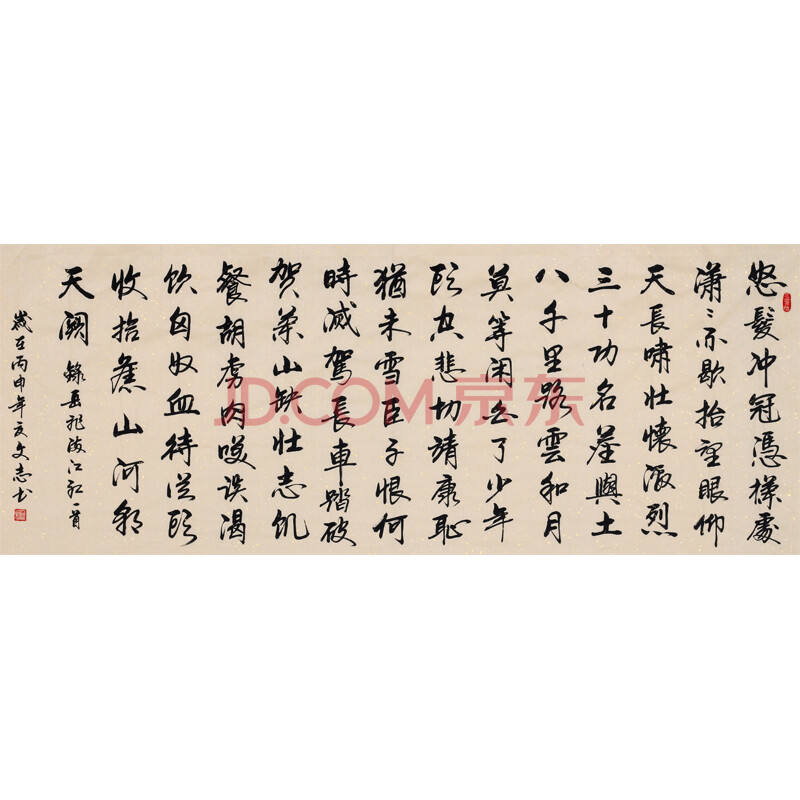 怒髮冲冠憑欄處
瀟〻雨歇抬望眼仰
天長嘯壯懷激烈
三十功名塵與土
八千里路雲和月
莫等闲白了少年
頭空悲切靖康恥
猶未雪臣子恨何
時滅駕長車踏破
賀蘭山缺壯志飢
餐胡虜肉笑談渴
飲匈奴血待從頭
收拾舊山河朝
天闕 錄岳飛滿江紅一首
歲在丙申年夏文志书
JD.COM 京东